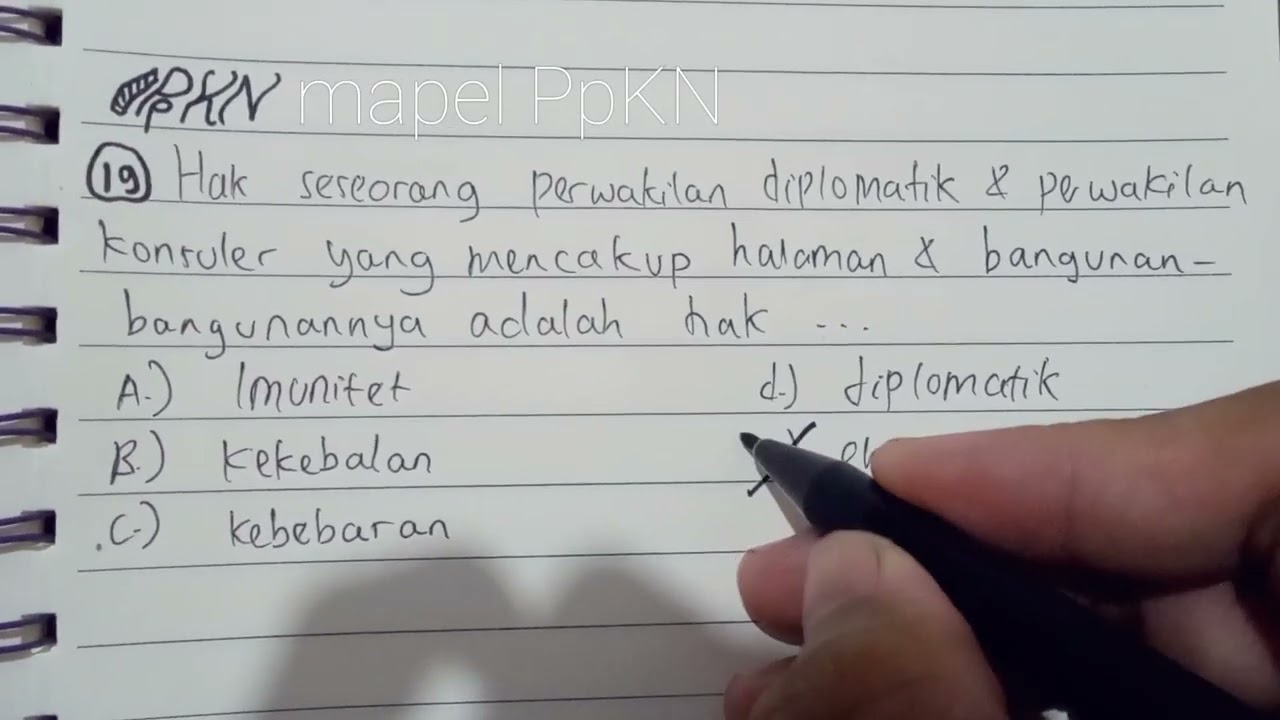 PPKN mapel PpKN
19 Hak seseorang perwakilan diplomatik & perwakilan
konsuler yang mencakup halaman & bangunan-
bangunannya adalah hak ...
A.) Imunitet d.) diplomatik
B.) kekebalan
C.) kebebasan